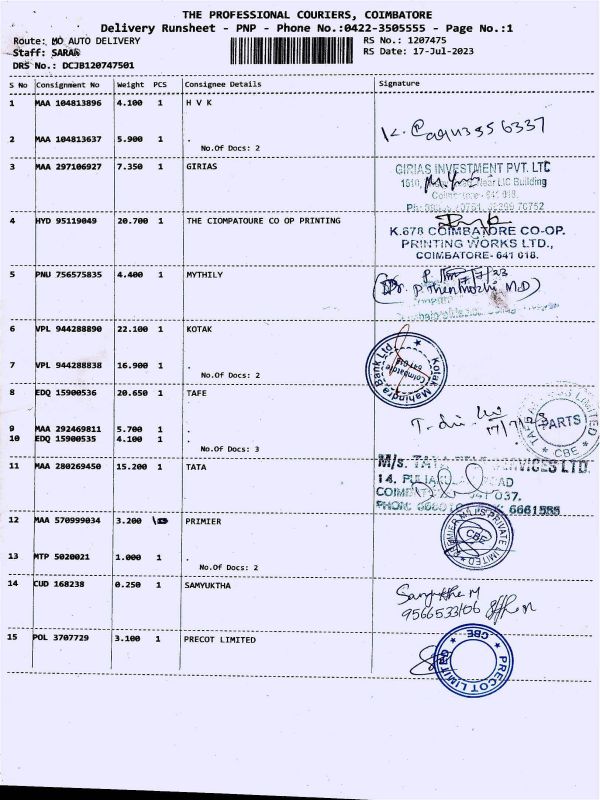 THE PROFESSIONAL COURIERS, COIMBATORE
Delivery Runsheet - PNP - Phone No.:0422-3505555 - Page No.:1
Route: MO AUTO DELIVERY RS No.: 1207475
Staff: SARAN RS Date: 17-Jul-2023
DRS No.: DCJB120747501
S No Consignment No Weight PCS Consignee Details Signature
1 MAA 104813896 4.100 1 H V K
2 MAA 104813637 5.900 1 .
No.Of Docs: 2
3 MAA 297106927 7.350 1 GIRIAS
GIRIAS INVESTMENT PVT. LTC
Near LIC Building
4 HYD 95119049 20.700 1 THE CIOMPATOURE CO OP PRINTING
K.678 COIMBATORE CO-OP.
PRINTING WORKS LTD.,
COIMBATORE- 641 018.
5 PNU 756575835 4.400 1 MYTHILY
6 VPL 944288890 22.100 1 KOTAK
Kotak Mahindra Bank Ltd.
Coimbatore
641 018
7 VPL 944288838 16.900 1 .
No.Of Docs: 2
8 EDQ 15900536 20.650 1 TAFE
PARTS
CBE
9 MAA 292469811 5.700 1 .
10 EDQ 15900535 4.100 1 .
No.Of Docs: 3
11 MAA 280269450 15.200 1 TATA
M/s. TATA SERVICES LTD.
14,
6661555
12 MAA 570999034 3.200 PRIMIER
CBE
13 MTP 5020021 1.000 1 .
No.Of Docs: 2
14 CUD 168238 0.250 1 SAMYUKTHA
Samyuktha M
15 POL 3707729 3.100 1 PRECOT LIMITED
PRECOT LIMITED
CBE